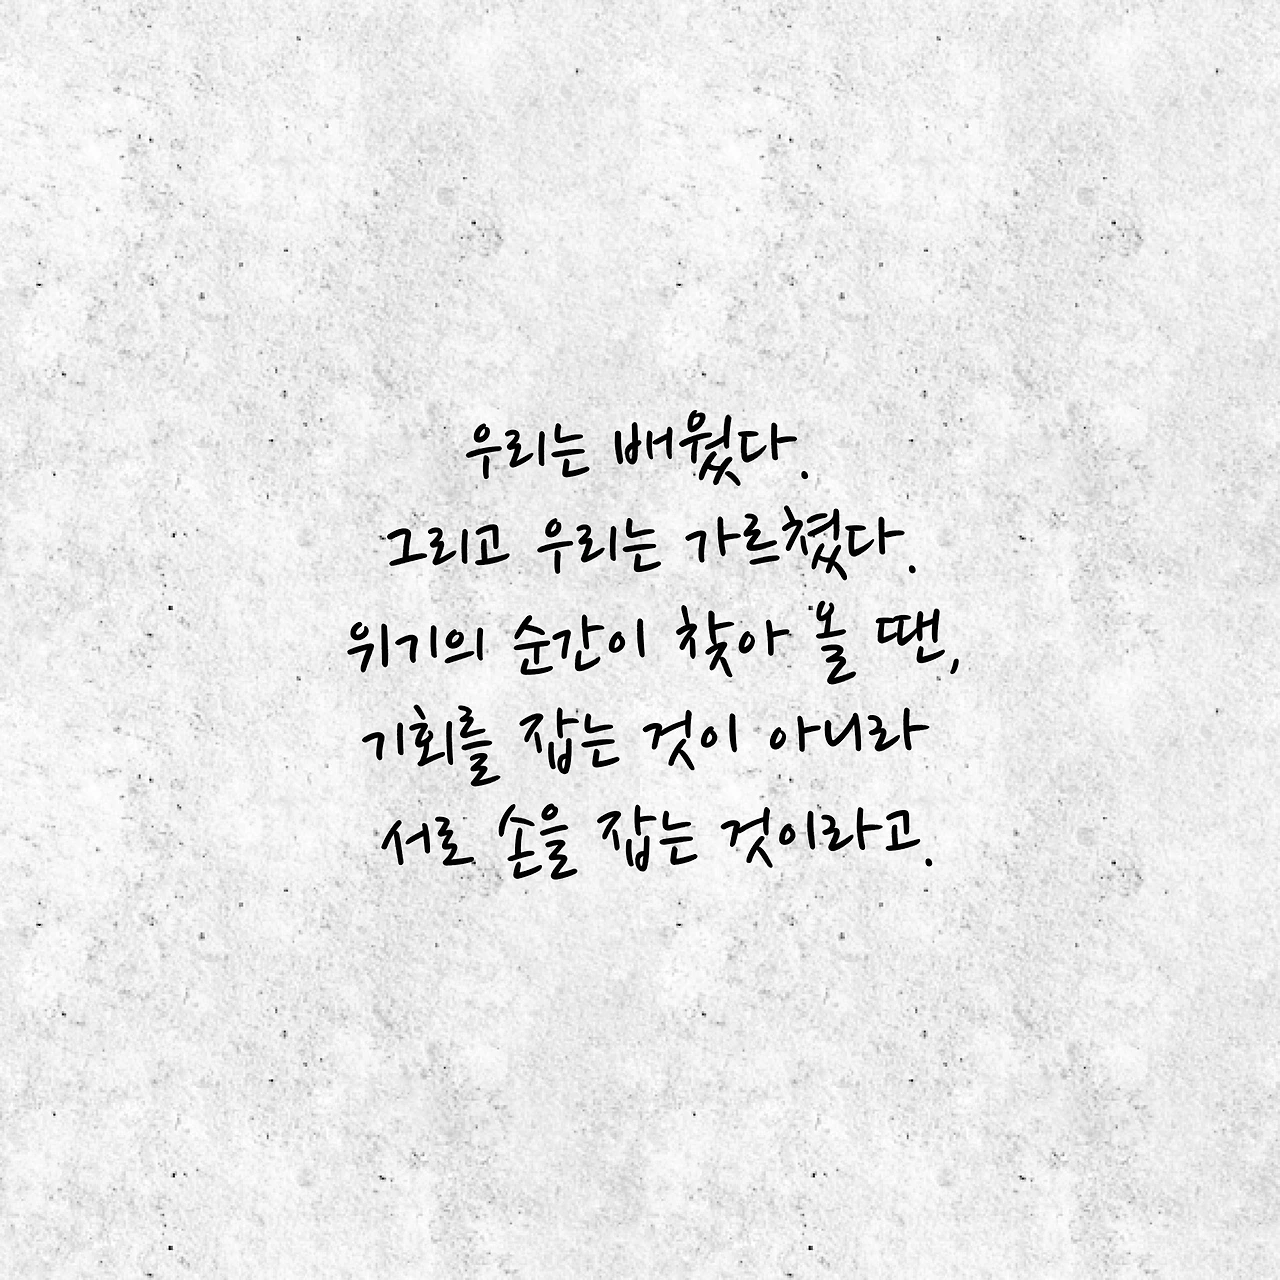 우리는 배웠다.
그리고 우리는 가르쳤다.
위기의 순간이 찾아 올 땐,
기회를 잡는 것이 아니라
서로 손을 잡는 것이라고.